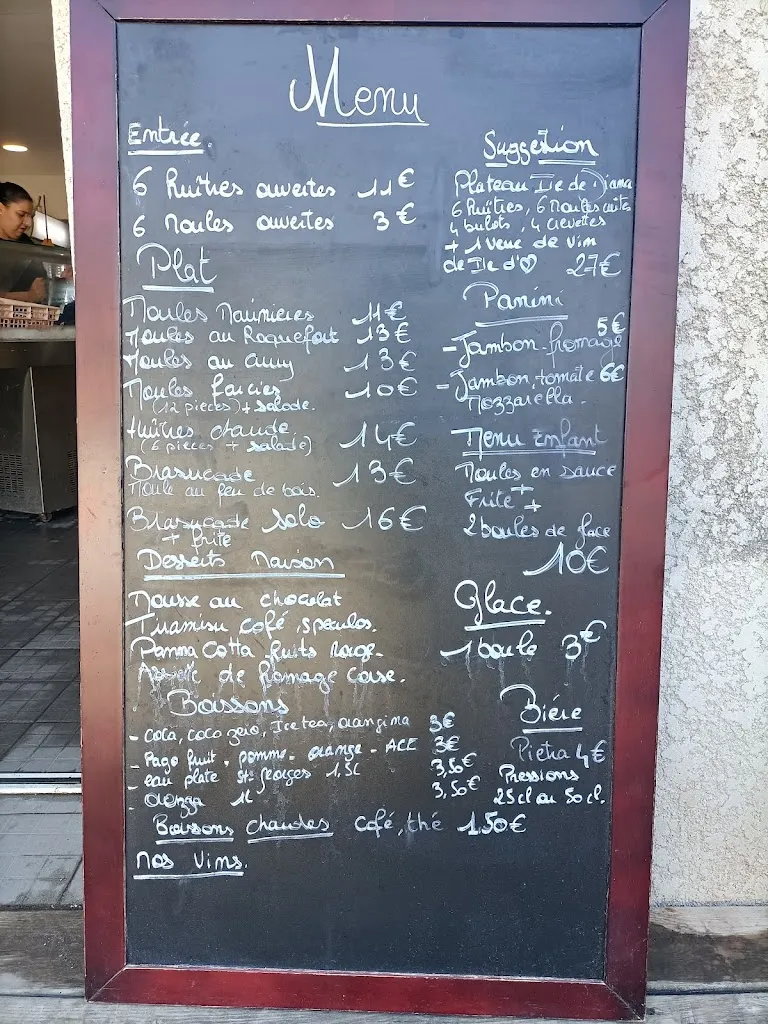 Menu
Entrée
6 huîtres ouvertes 11€
6 Moules ouvertes 3€
Plat
Moules Marinieres 11€
Moules au Roquefort 13€
Moules au curry 13€
Moules farcies 10€
(12 pieces) + salade.
Huîtres chaude 14€
(6 pieces + salade)
Brasucade 13€
Moule au feu de bois.
Brasucade solo 16€
+ frite
Desserts Maison
Mousse au chocolat
Tiramisu café, speculos.
Panna Cotta fruits Rouge.
Assiette de fromage Corse.
Boissons
- coca, coco zero, Ice tea, orangina 3€
- Pago fruit. pomme. orange - ACE 3€
- eau plate St Georges 1,5L 3,50€
- Orezza 1L 3,50€
Boissons chaudes café, thé 1,50€
Nos Vins.
Suggestion
Plateau Ile de Diana
6 huîtres, 6 Moules cuites
4 bulots, 4 crevettes
+ 1 verre de vin
de Ile d'♡ 27€
Panini
5€
- Jambon-fromage
- Jambon, tomate 6€
Mozzarella.
Menu Enfant
Moules en sauce
+
Frite +
2 boules de glace
10€
Glace.
1 boule 3€
Bière
Pietra 4€
Pressions
25cl ou 50cl.